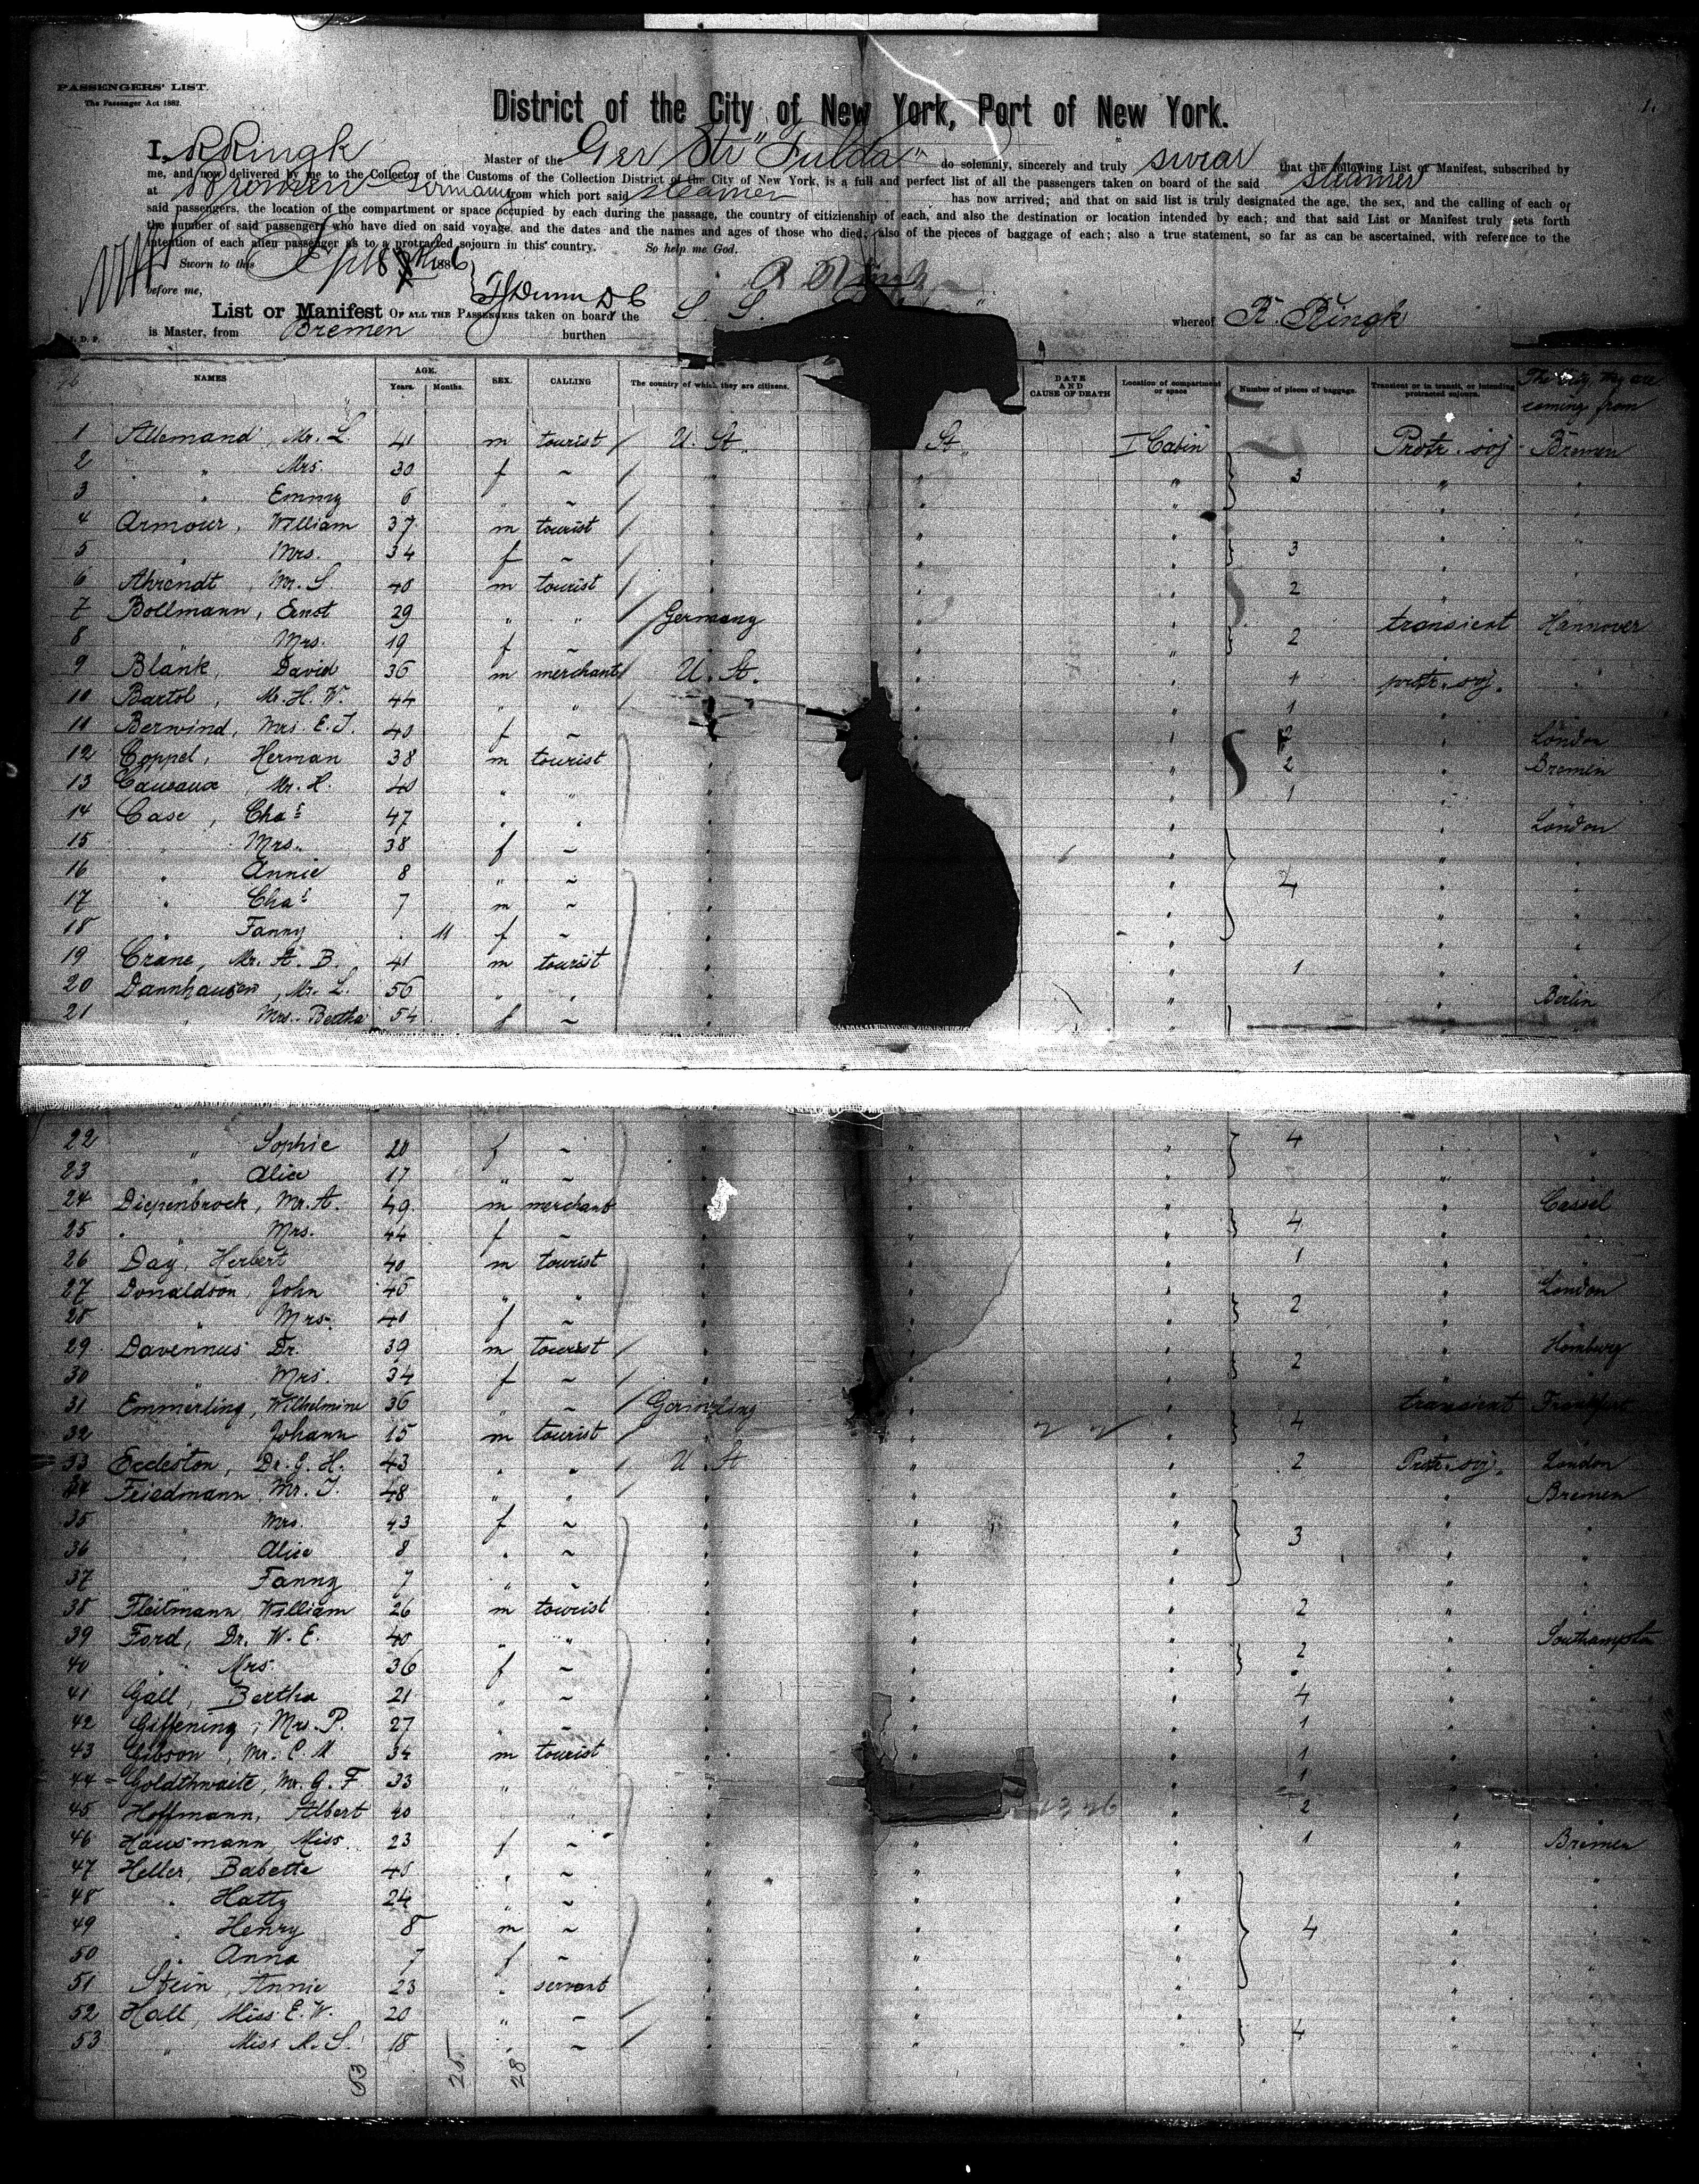 PASSENGERS' LIST.
The Passenger Act 1882.
1.
District of the City of New York, Port of New York.
I, R Ringk Master of the Ger Str "Fulda" do solemnly, sincerely and truly swear that the following List or Manifest, subscribed by
me, and now delivered by me to the Collector of the Customs of the Collection District of the City of New York, is a full and perfect list of all the passengers taken on board of the said steamer
at Bremen Germany from which port said steamer has now arrived; and that on said list is truly designated the age, the sex, and the calling of each of
said passengers, the location of the compartment or space occupied by each during the passage, the country of citizienship of each, and also the destination or location intended by each; and that said List or Manifest truly sets forth
the number of said passengers who have died on said voyage, and the dates and the names and ages of those who died; also of the pieces of baggage of each; also a true statement, so far as can be ascertained, with reference to the
intention of each alien passenger as to a protracted sojourn in this country. So help me God.
Sworn to this Sept 1886
before me, TJ Dunn D C R Ringk
List or Manifest OF ALL THE PASSENGERS taken on board the S. S. whereof R. Ringk
is Master, from Bremen burthen
NAMES AGE. Years. Months. SEX. CALLING The country of which they are citizens. DATE AND CAUSE OF DEATH Location of compartment or space Number of pieces of baggage. Transient or in transit, or intending protracted sojourn. The city, they are coming from
1 Allemand, Mr. L. 41 m tourist / U. St. St. I Cabin Protr. soj. Bremen
2 " Mrs. 30 f ~ / " " " 3 " "
3 " Emmy 6 " ~ / " " " " "
4 Armour, William 37 m tourist / " " " " "
5 " Mrs. 34 f ~ / " " " 3 " "
6 Ahrendt Mr. S 40 m tourist / " " " 2 " "
7 Bollmann, Ernst 29 " " / Germany " " transient Hannover
8 " Mrs. 19 f ~ / " " " 2 " "
9 Blank, David 36 m merchant / U. St. " " 1 protr. soj. "
10 Bartol, Mr. H. W. 44 " " / " " " 1 " "
11 Berwind, Mrs. E. J. 40 f ~ " " " 2 " London
12 Coppel, Herman 38 m tourist " " 2 " Bremen
13 Mr. H. 40 " " " " 1 " "
14 Case, Chas 47 " " " " " London
15 " Mrs. 38 f ~ " " " "
16 " Annie 8 " ~ " " 4 " "
17 " Chas 7 m ~ " " " "
18 " Fanny 11 f ~ " " " "
19 Crane, Mr. A. B. 41 m tourist " " 1 " "
20 Dannhauser, Mr. L. 56 " " " " " Berlin
21 " Mrs. Bertha 54 f ~ " " " "
22 " Sophie 20 f ~ " " " 4 " "
23 " Alice 17 " ~ " " " " "
24 Diepenbrock, Mr. A. 49 m merchant " " " " Cassel
25 " Mrs. 44 f ~ " " " 4 " "
26 Day, Herbert 40 m tourist " " " 1 " "
27 Donaldson, John 45 " " " " " " London
28 " Mrs. 40 f ~ " " " 2 " "
29 Davennus Dr. 39 m tourist / " " " " Homburg
30 " Mrs. 34 f ~ / " " " 2 " "
31 Emmerling, Wilhelmine 36 " ~ / Germany " " transient Frankfurt
32 Johann 15 m tourist / " " " 4 " "
33 Eccleston, Dr. J. H. 43 " " / U. St " " 2 Protr. soj. London
34 Friedmann Mr. J. 48 " " " " " " Bremen
35 " Mrs. 43 f ~ " " " " "
36 " Alice 8 " ~ " " " 3 " "
37 " Fanny 7 " ~ " " " " "
38 Fleitmann, William 26 m tourist " " " 2 " "
39 Ford, Dr. W. E. 40 " " " " " " Southampton
40 " Mrs. 36 f ~ " " " 2 " "
41 Gall, Bertha 21 " ~ " " " 4 " "
42 Giffening, Mrs. P. 27 " ~ " " 1 " "
43 Gibson, Mr. C. M 34 m tourist " " 1 " "
44 Goldthwaite, Mr. G. F 33 " " " " 1 " "
45 Hoffmann, Albert 40 " " " 2 " "
46 Hausmann, Miss 23 f ~ " " " 1 " Bremen
47 Heller, Babette 45 " ~ " " " " "
48 " Hatty 24 " ~ " " " " "
49 " Henry 8 m ~ " " " 4 " "
50 " Anna 7 f ~ " " " " "
51 Stein, Annie 23 " servant " " " " "
52 Hall, Miss E. W. 20 " ~ / " " " " "
53 " Miss A. S. 18 " ~ / " " " 4 " "
53 25. 28